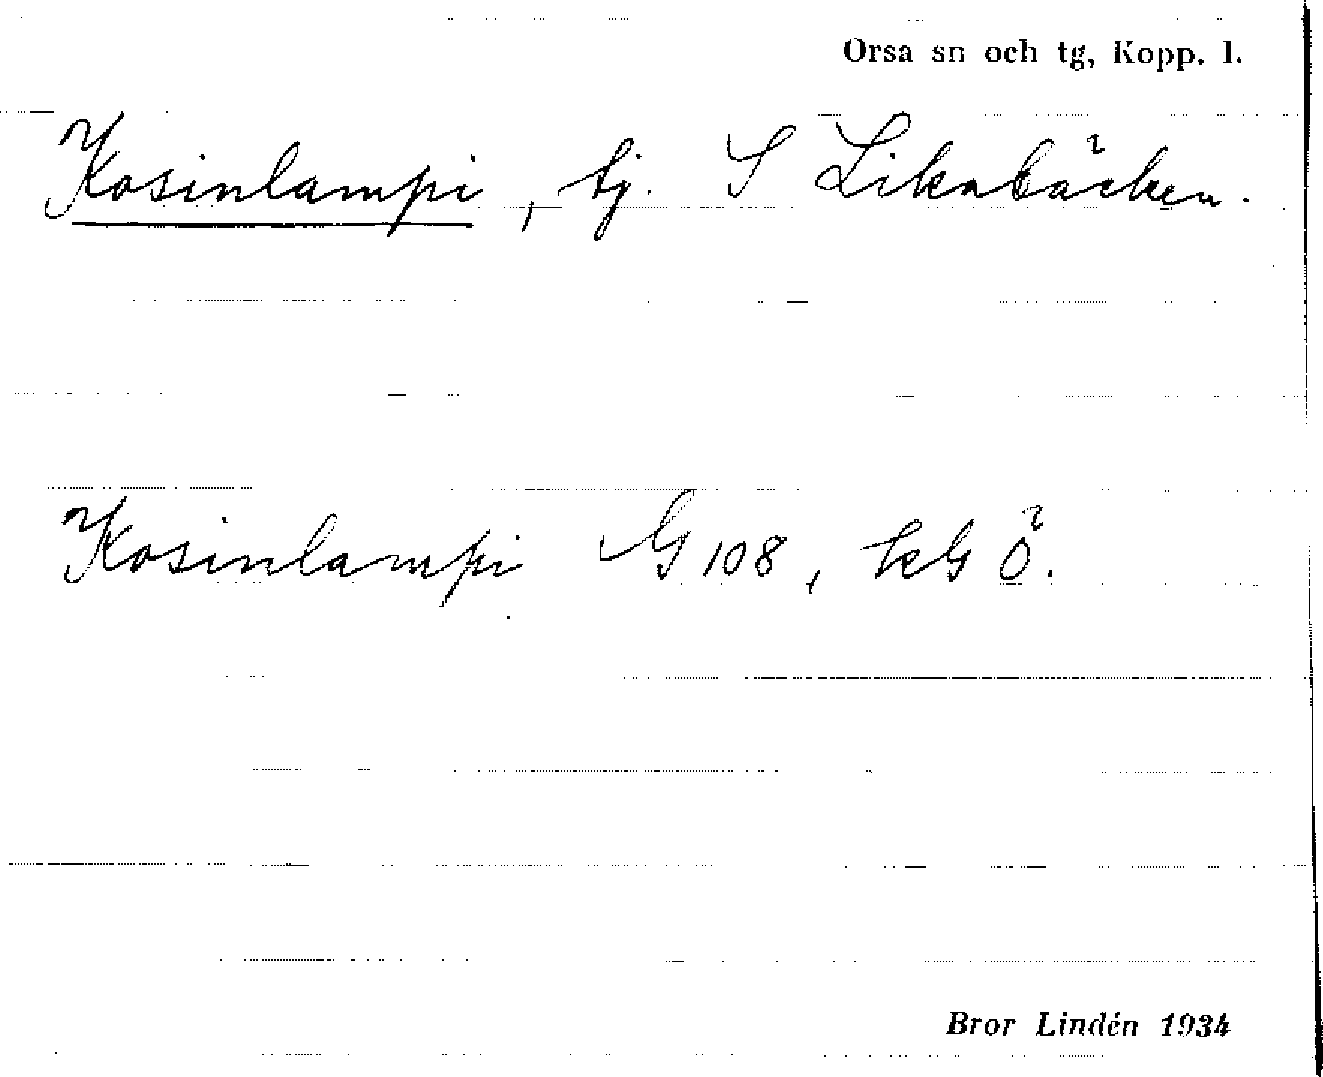 Orsa sn och tg, Kopp. l.
Kosinlampi, tj. S Liknbäcken.
Kosinlampi G 108, ö.
Bror Lindén 1934